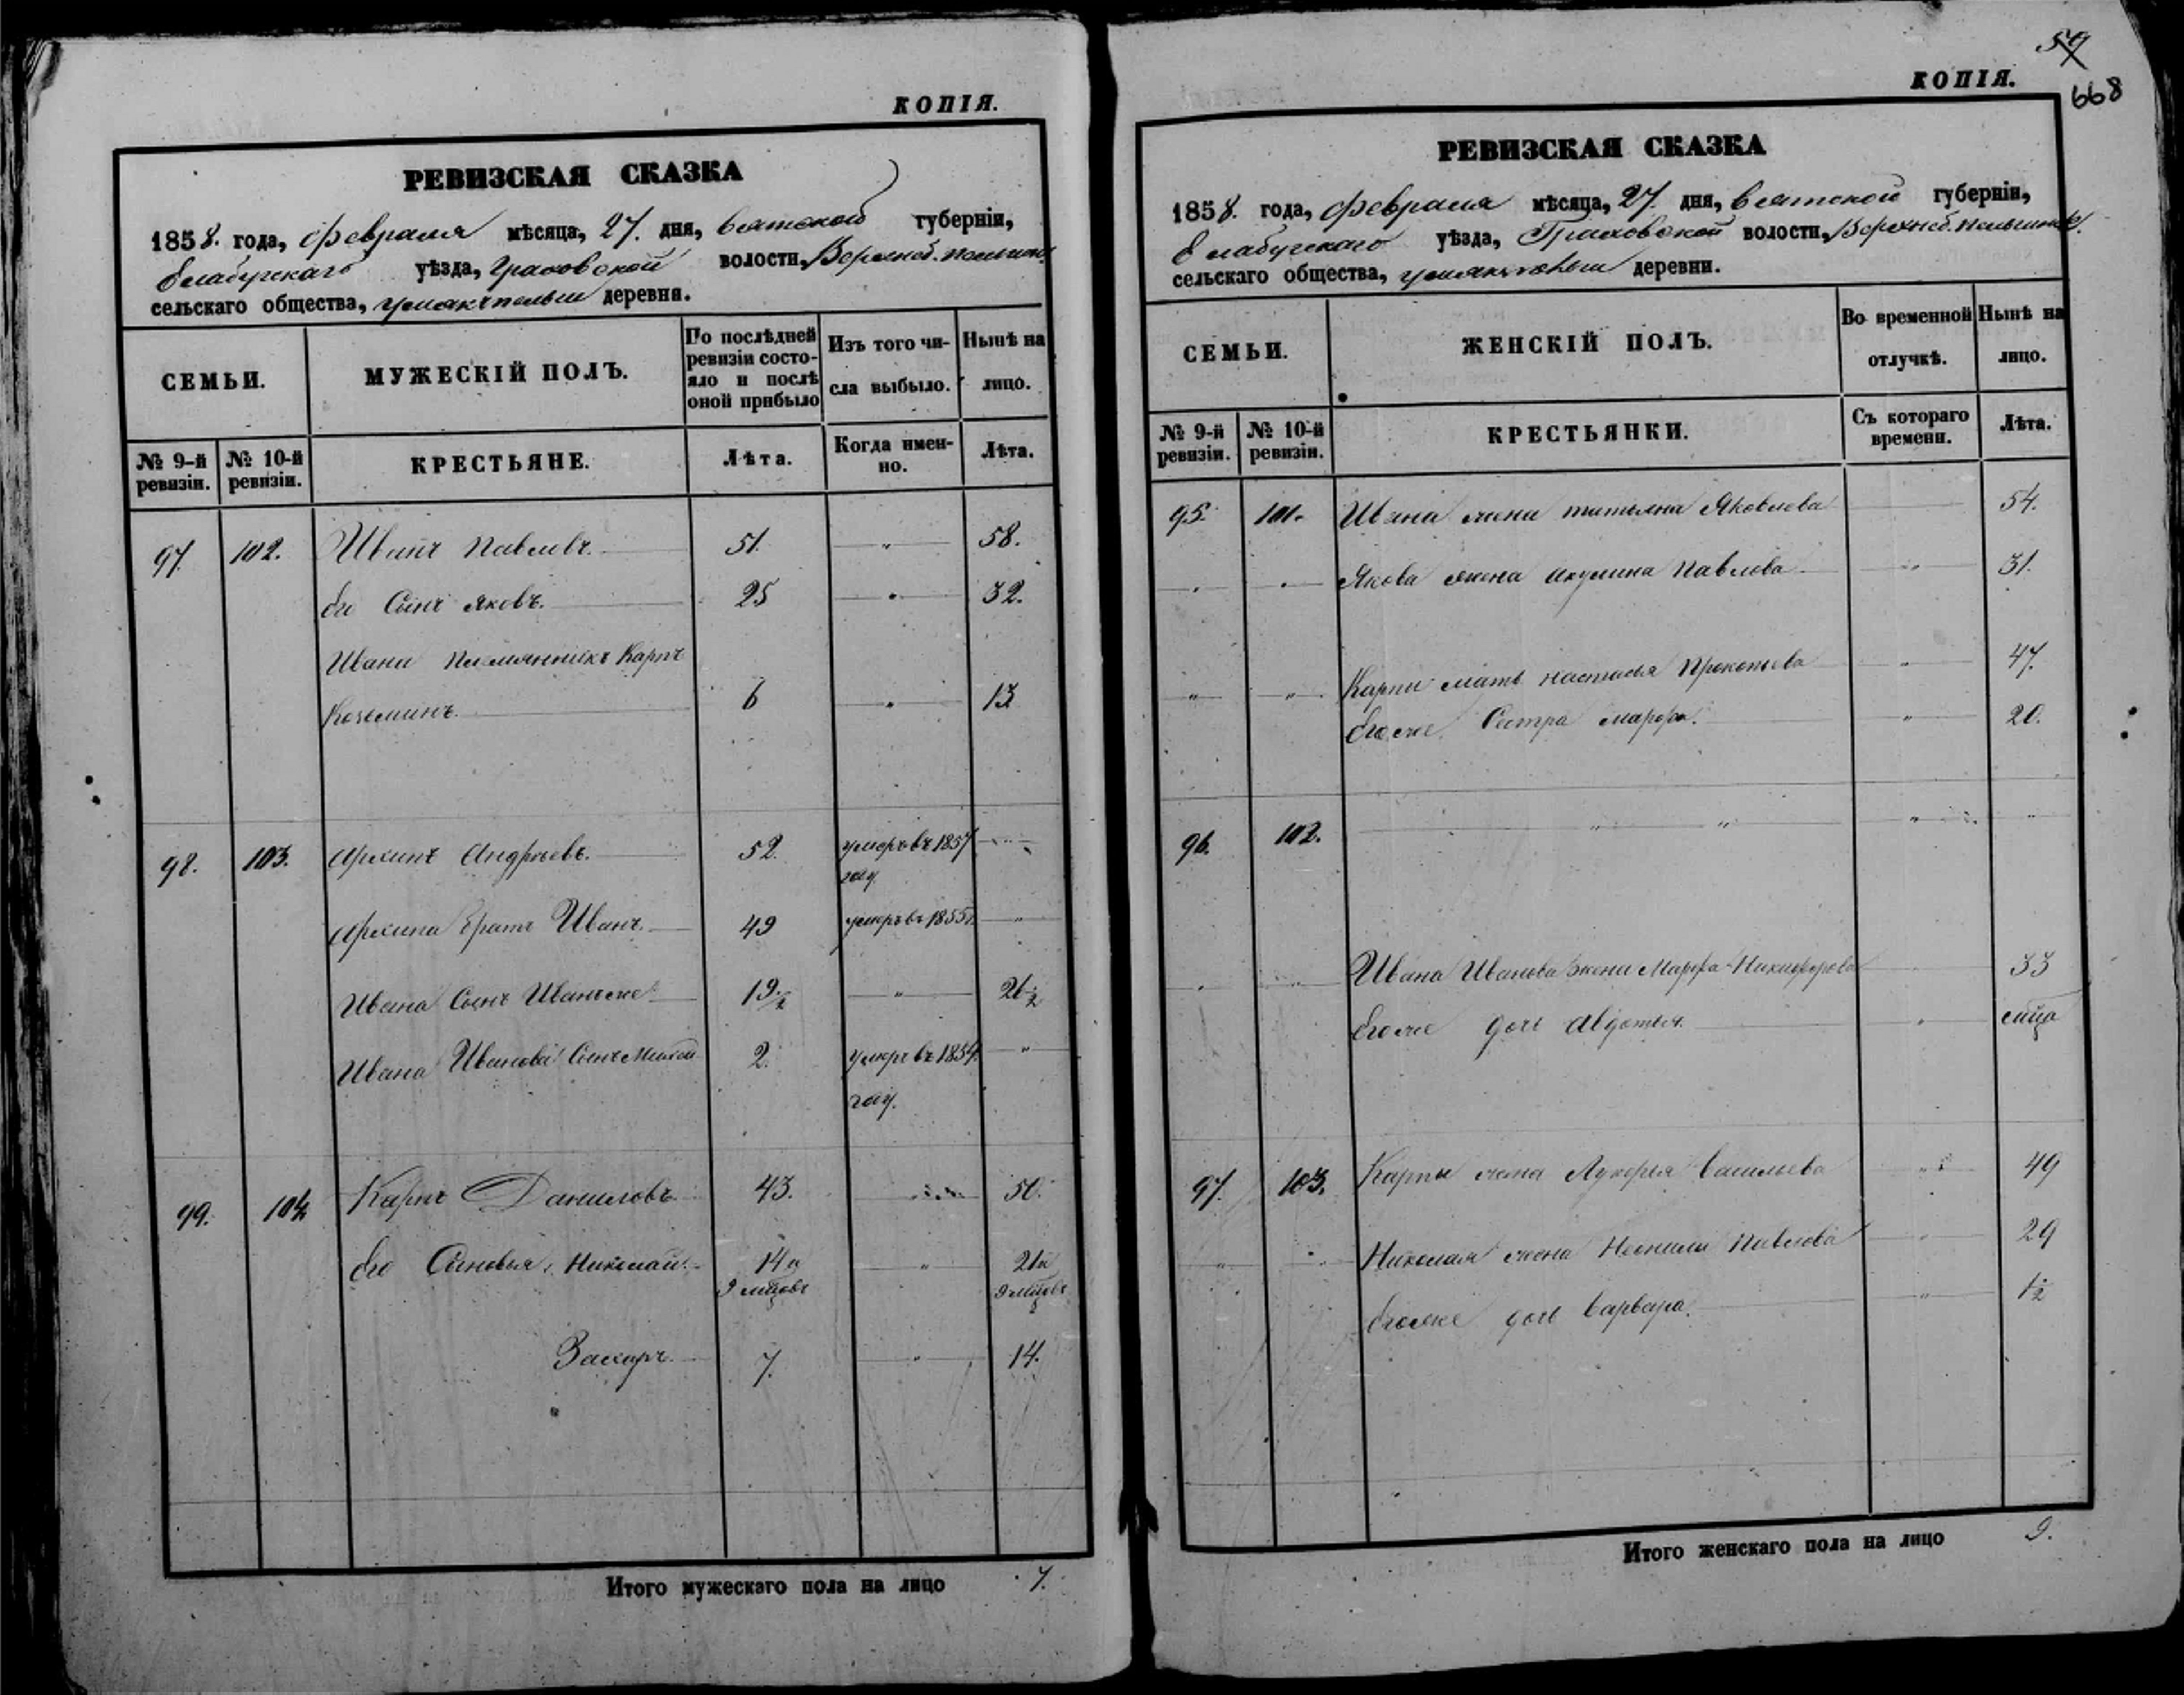 КОПІЯ.
РЕВИЗСКАЯ СКАЗКА
1858. года, февраля мѣсяца, 27. дня, вятской губерніи,
Елабужскаго уѣзда, Граховской волости,
сельскаго общества, деревни.
СЕМЬИ.
МУЖЕСКІЙ ПОЛЪ.
По послѣдней ревизіи состояло и послѣ оной прибыло
Изъ того числа выбыло.
Нынѣ на лицо.
№ 9-й ревизіи.
№ 10-й ревизіи.
КРЕСТЬЯНЕ.
Лѣта.
Когда именно.
Лѣта.
97. 102. Иванъ Павловъ. 51. " 58.
Его Сынъ Яковъ. 25 " 32.
Ивана Племянникъ Карпъ
Козьминъ. 6 " 13
98. 103. Архипъ Андреевъ. 52. умеръ въ 1857 "
году.
Архипа братъ Иванъ. 49 умеръ въ 1855 г. "
Ивана Сынъ Иванъ же 19 1/2 " 26 1/2
Ивана Иванова Сынъ 2. умеръ въ 1854. "
году.
99. 104 Карпъ Даниловъ 43. " 50.
Его Сыновья, Николай. 14 и " 21 и
9 мцовъ 9 мцовъ
Захаръ. 7. " 14.
Итого мужескаго пола на лицо 7.
59
668
КОПІЯ.
РЕВИЗСКАЯ СКАЗКА
1858. года, февраля мѣсяца, 27. дня, вятской губерніи,
Елабужскаго уѣзда, Граховской волости,
сельскаго общества, деревни.
СЕМЬИ.
ЖЕНСКІЙ ПОЛЪ.
Во временной отлучкѣ.
Нынѣ на лицо.
№ 9-й ревизіи.
№ 10-й ревизіи.
КРЕСТЬЯНКИ.
Съ котораго времени.
Лѣта.
95. 101. Ивана жена татьяна Яковлева 54.
" " Якова жена акулина Павлова " 31.
" " Карпа мать настасья Прокопьева " 47.
Его же Сестра марфа. " 20.
96. 102. " " " "
" " Ивана Иванова жена Марфа Никифорова 33
Его же дочь авдотья. " мца
97. 103. Карпа жена Лукерья васильева " 49
" " Николая жена Неонила Павлова " 29
Его же дочь варвара. " 1/2
Итого женскаго пола на лицо 9.